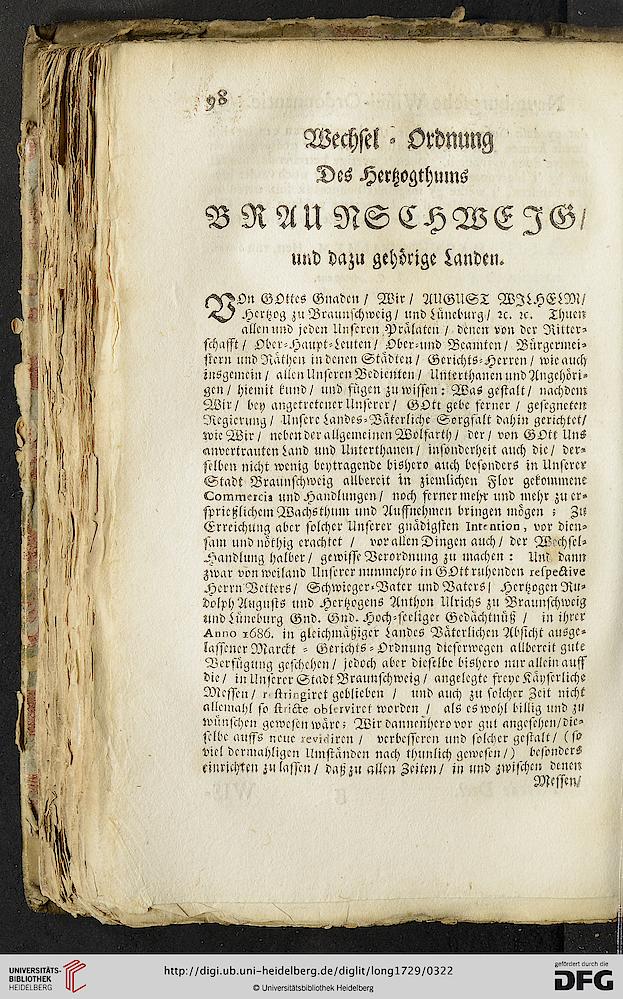 98
Wechsel - Ordnung
Des Hertzogthums
BRAUNSCHWEIG/
und dazu gehörige Landen.
VOn GOttes Gnaden / Wir / AUGUST WILHELM/
Hertzog zu Braunschweig / und Lüneburg / ꝛc. ꝛc. Thuen
allen und jeden Unseren Prälaten / denen von der Ritter-
schafft / Ober-Haupt-Leuten / Ober-und Beamten / Bürgermei-
stern und Räthen in denen Städten / Gerichts-Herren / wie auch
insgemein / allen Unseren Bedienten / Unterthanen und Angehöri-
gen / hiemit kund / und fügen zu wissen : Was gestalt / nachdem
Wir / bey angetretener Unserer / GOtt gebe ferner / gesegneten
Regierung / Unsere Landes-Väterliche Sorgfalt dahin gerichtet/
wie Wir / neben der allgemeinen Wolfarth / der / von GOtt Uns
anvertrauten Land und Unterthanen / insonderheit auch die / der-
selben nicht wenig beytragende bishero auch besonders in Unserer
Stadt Braunschweig allbereit in ziemlichen Flor gekommene
Commercia und Handlungen / noch ferner mehr und mehr zu er-
sprießlichem Wachsthum und Auffnehmen bringen mögen ; Zu
Erreichung aber solcher Unserer gnädigsten Intention, vor dien-
sam und nöthig erachtet / vor allen Dingen auch / der Wechsel-
Handlung halber / gewisse Verordnung zu machen : Und dann
zwar von weiland Unserer nunmehro in GOtt ruhenden respective
Herrn Vetters / Schwieger-Vater und Vaters / Hertzogen Ru-
dolph Augusts und Hertzogens Anthon Ulrichs zu Braunschweig
und Lüneburg Gnd. Gnd. Hoch-seeliger Gedächtnüß / in ihrer
Anno 1686. in gleichmäßiger Landes Väterlichen Absicht ausge-
lassener Marckt - Gerichts - Ordnung dieserwegen allbereit gute
Verfügung geschehen / jedoch aber dieselbe bishero nur allein auff
die / in Unserer Stadt Braunschweig / angelegte freye Käyserliche
Messen / restringiret geblieben / und auch zu solcher Zeit nicht
allemahl so stricte observiret worden / als es wohl billig und zu
wünschen gewesen wäre; Wir dannenhero vor gut angesehen / die-
selbe auffs neue revidiren / verbesseren und solcher gestalt / (so
viel dermahligen Umständen nach thunlich gewesen/) besonders
einrichten zu lassen / daß zu allen Zeiten / in und zwischen denen
Messen/
UNIVERSITÄTS-
BIBLIOTHEK
HEIDELBERG
http://digi.ub.uni-heidelberg.de/diglit/long1729/0322
© Universitätsbibliothek Heidelberg
gefördert durch die
DFG